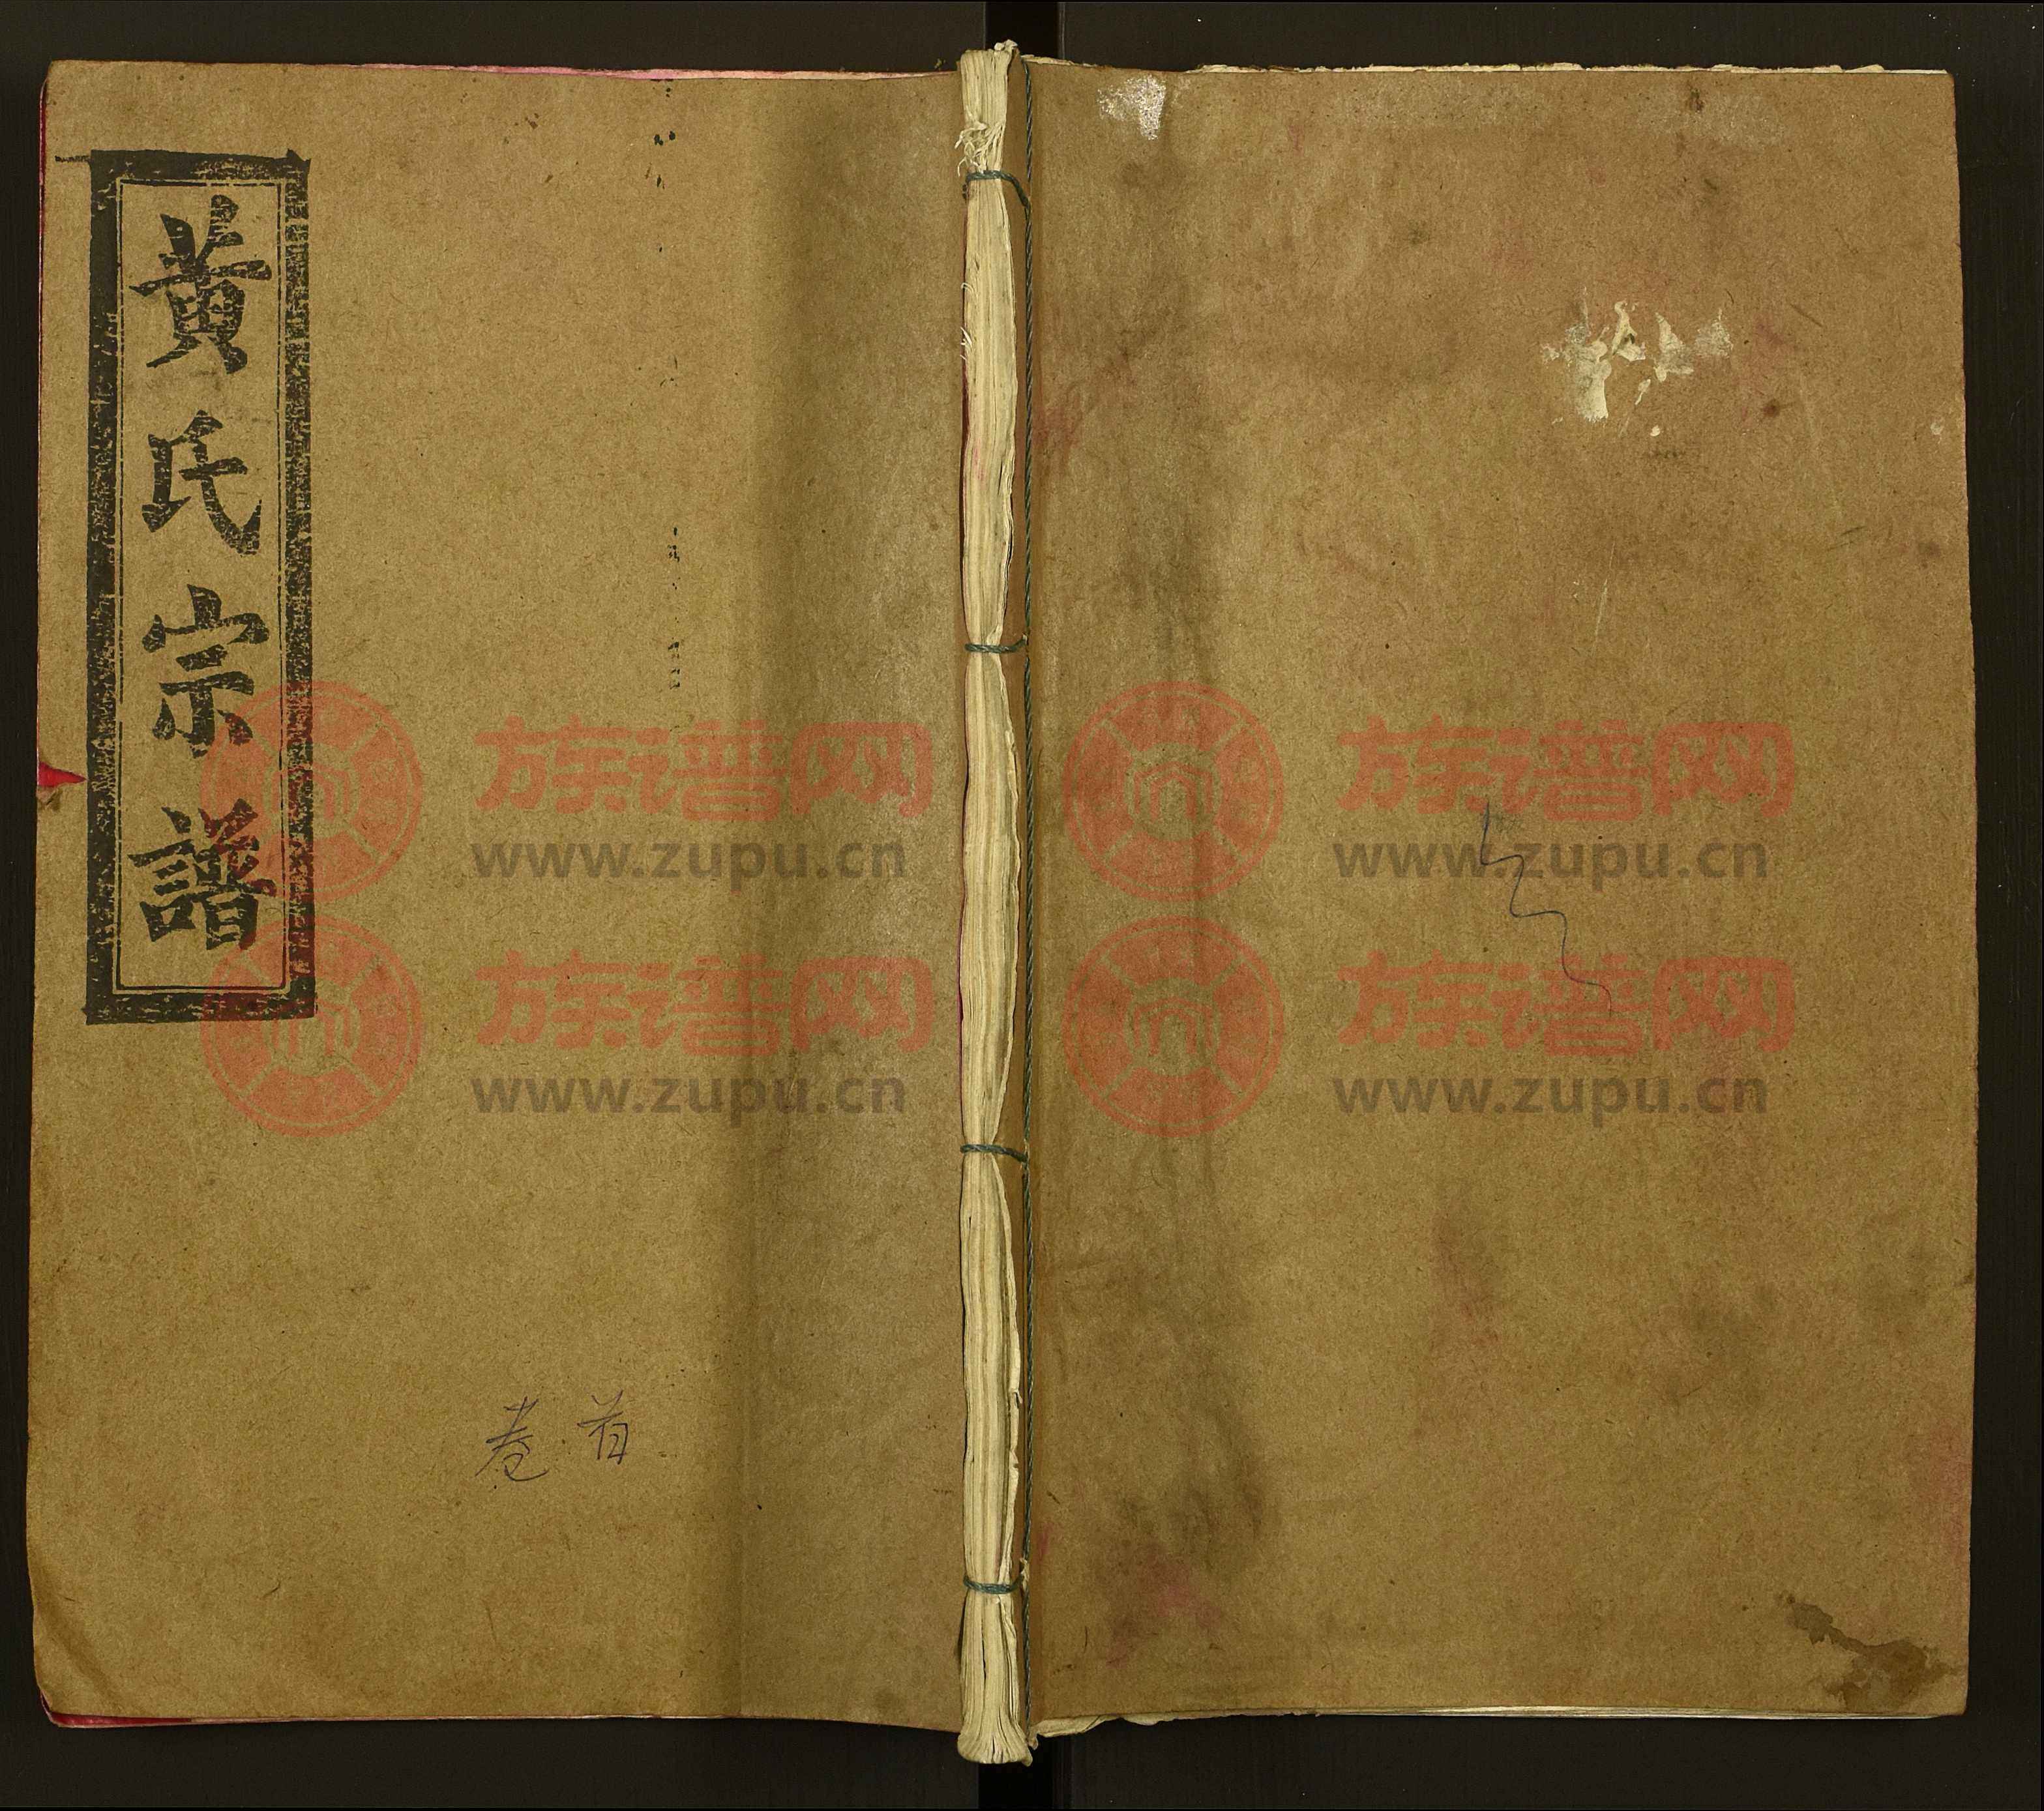 黃氏宗譜
卷首
族谱网
www.zupu.cn
族谱网
www.zupu.cn
族谱网
www.zupu.cn
族谱网
www.zupu.cn